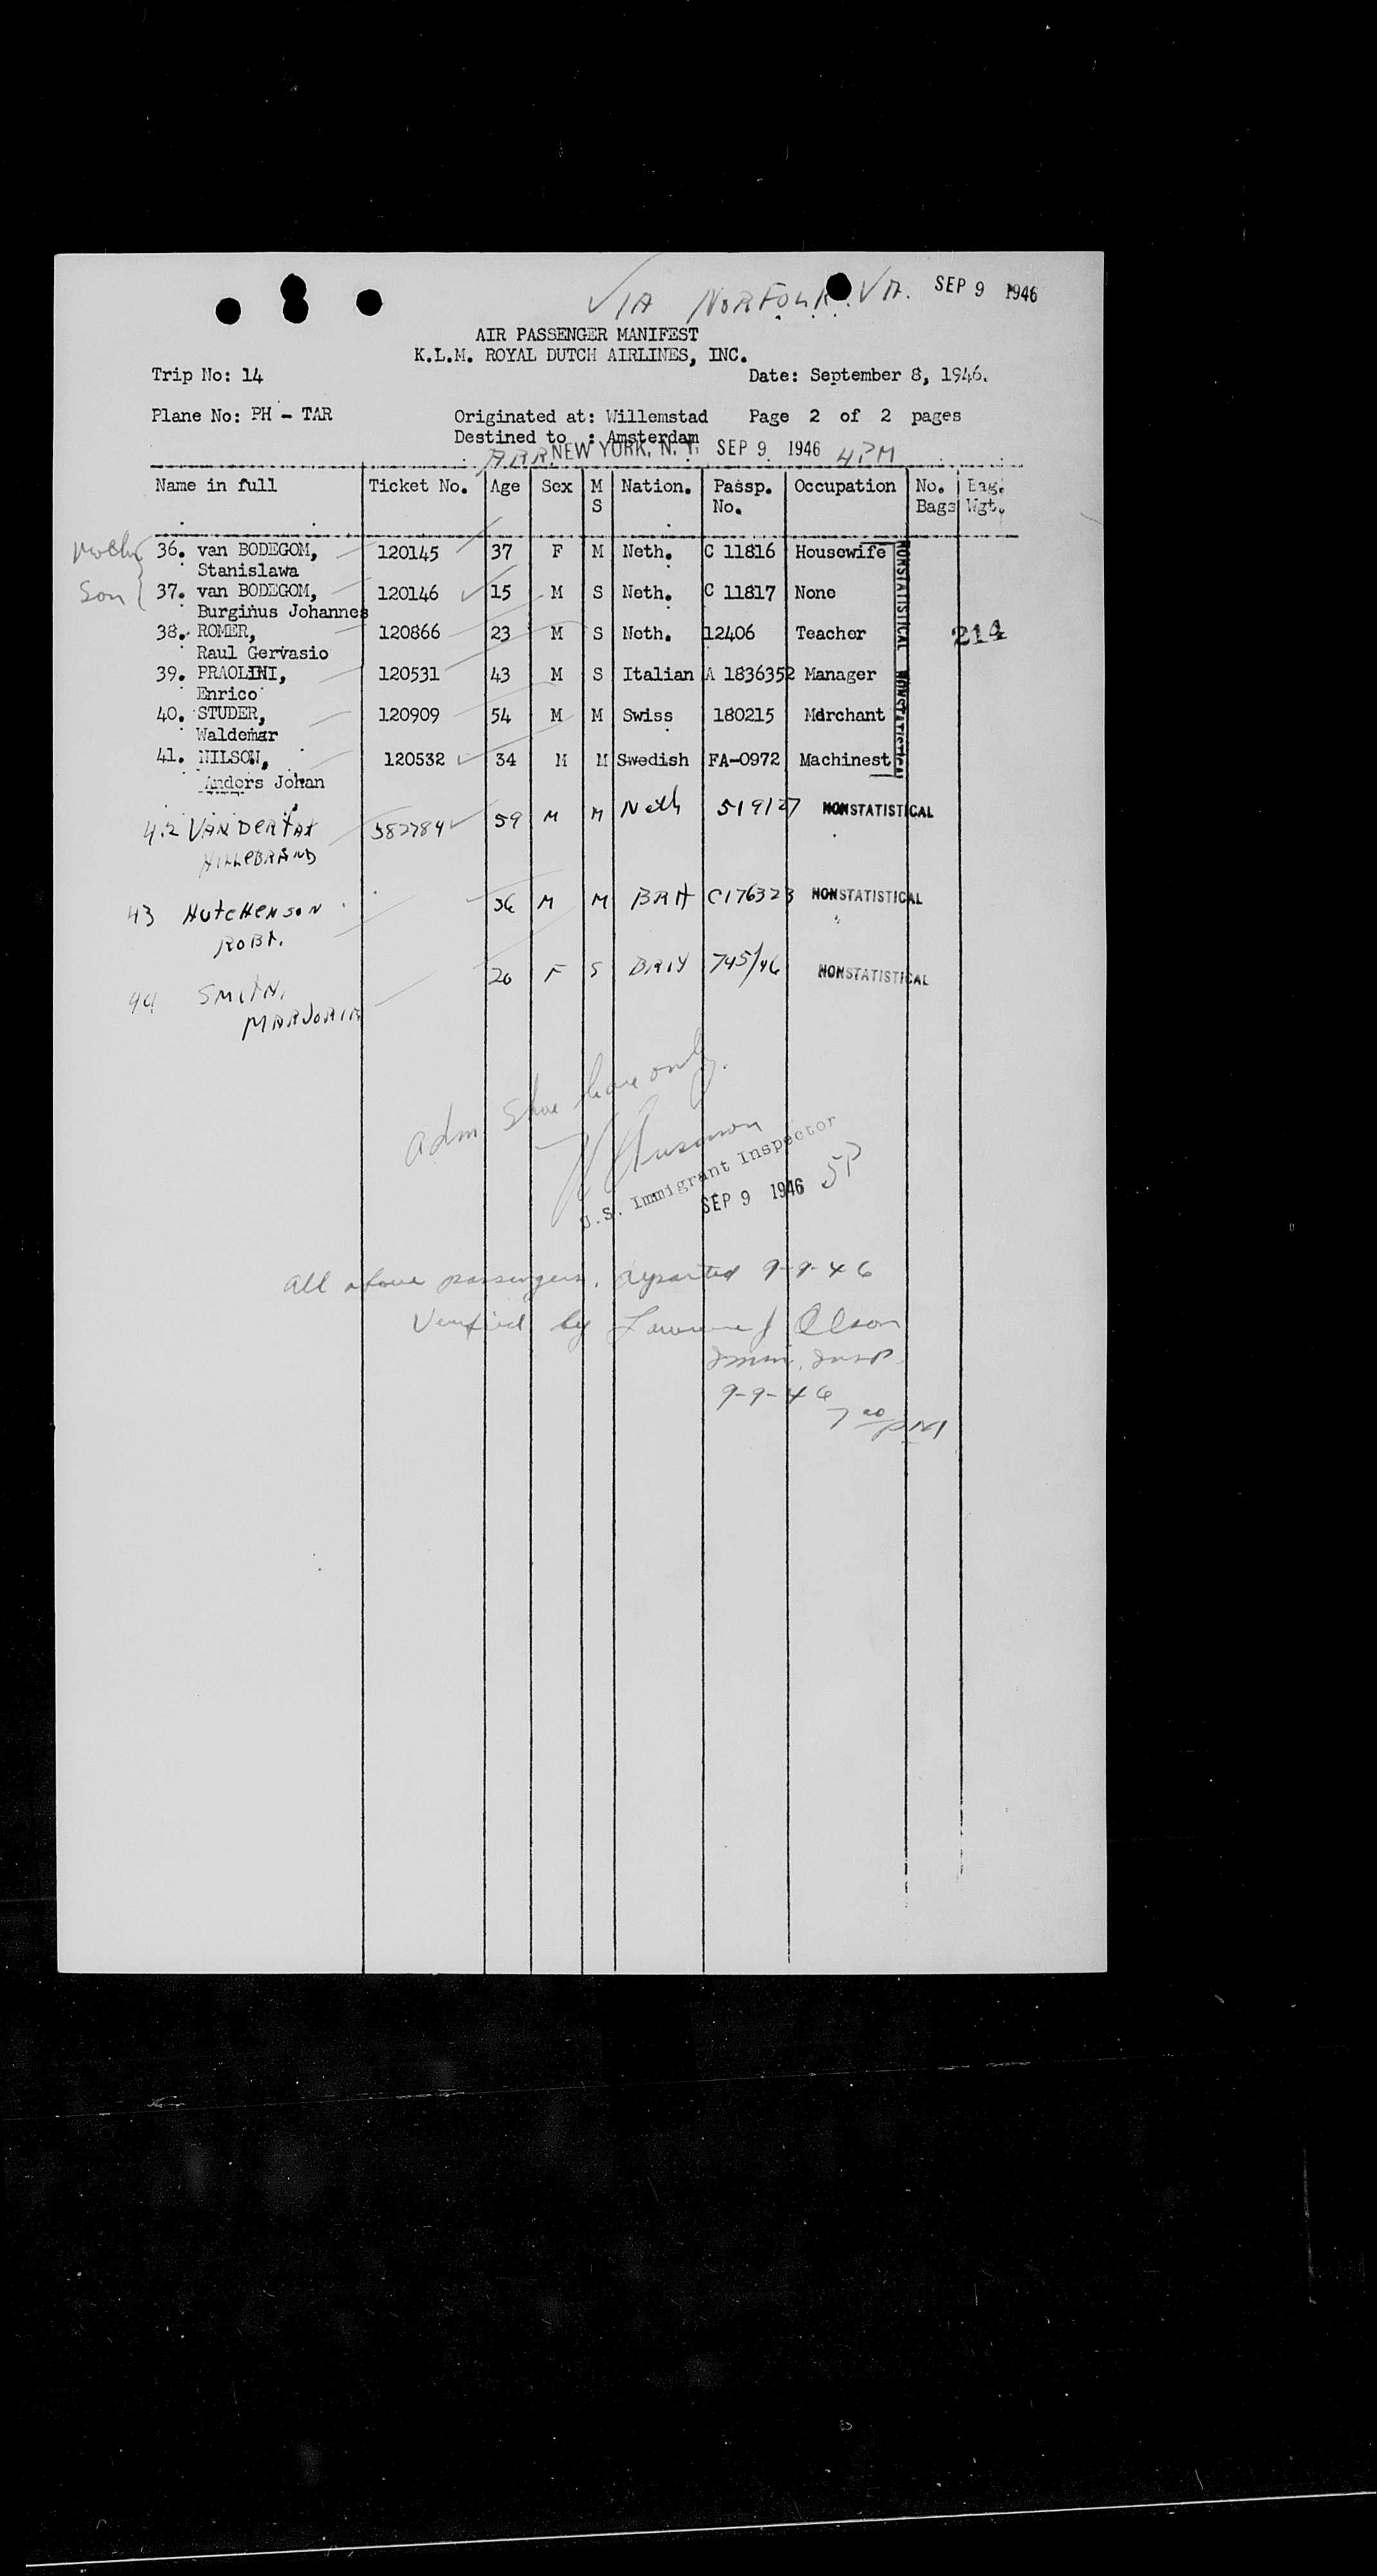 VIA NORFOLK VA. SEP 9 1946
AIR PASSENGER MANIFEST
K.L.M. ROYAL DUTCH AIRLINES, INC.
Trip No: 14 Date: September 8, 1946.
Plane No: PH - TAR Originated at: Willemstad Page 2 of 2 pages
Destined to : Amsterdam
ARR. NEW YORK, N. Y. SEP 9 1946 4PM
Name in full Ticket No. Age Sex M Nation. Passp. Occupation No. Bag.
S No. Bags Wgt.
36. van BODEGOM, 120145 37 F M Neth. C 11816 Housewife
Stanislawa
Son 37. van BODEGOM, 120146 15 M S Neth. C 11817 None
Burginus Johannes
38. ROMER, 120866 23 M S Neth. 12406 Teacher 214
Raul Gervasio
39. PRAOLINI, 120531 43 M S Italian A 1836352 Manager
Enrico
40. STUDER, 120909 54 M M Swiss 180215 Merchant
Waldemar
41. NILSON, 120532 34 M M Swedish FA-0972 Machinest
Anders Johan
NONSTATISTICAL NONSTATISTICAL
42 VAN DER 582784 59 M M Neth 519127 NONSTATISTICAL
HILLEBRAND
43 HUTCHENSON 36 M M C176323 NONSTATISTICAL
ROBT.
44 SMITH, 20 F S 745/46 NONSTATISTICAL
MARJORIE
adm shore leave only.
U.S. Immigrant Inspector
SEP 9 1946 5P
All above passengers, departed 9-9-46
Verified by Lawrence J Olson
Immi. Insp.
9-9-46
7 00 PM